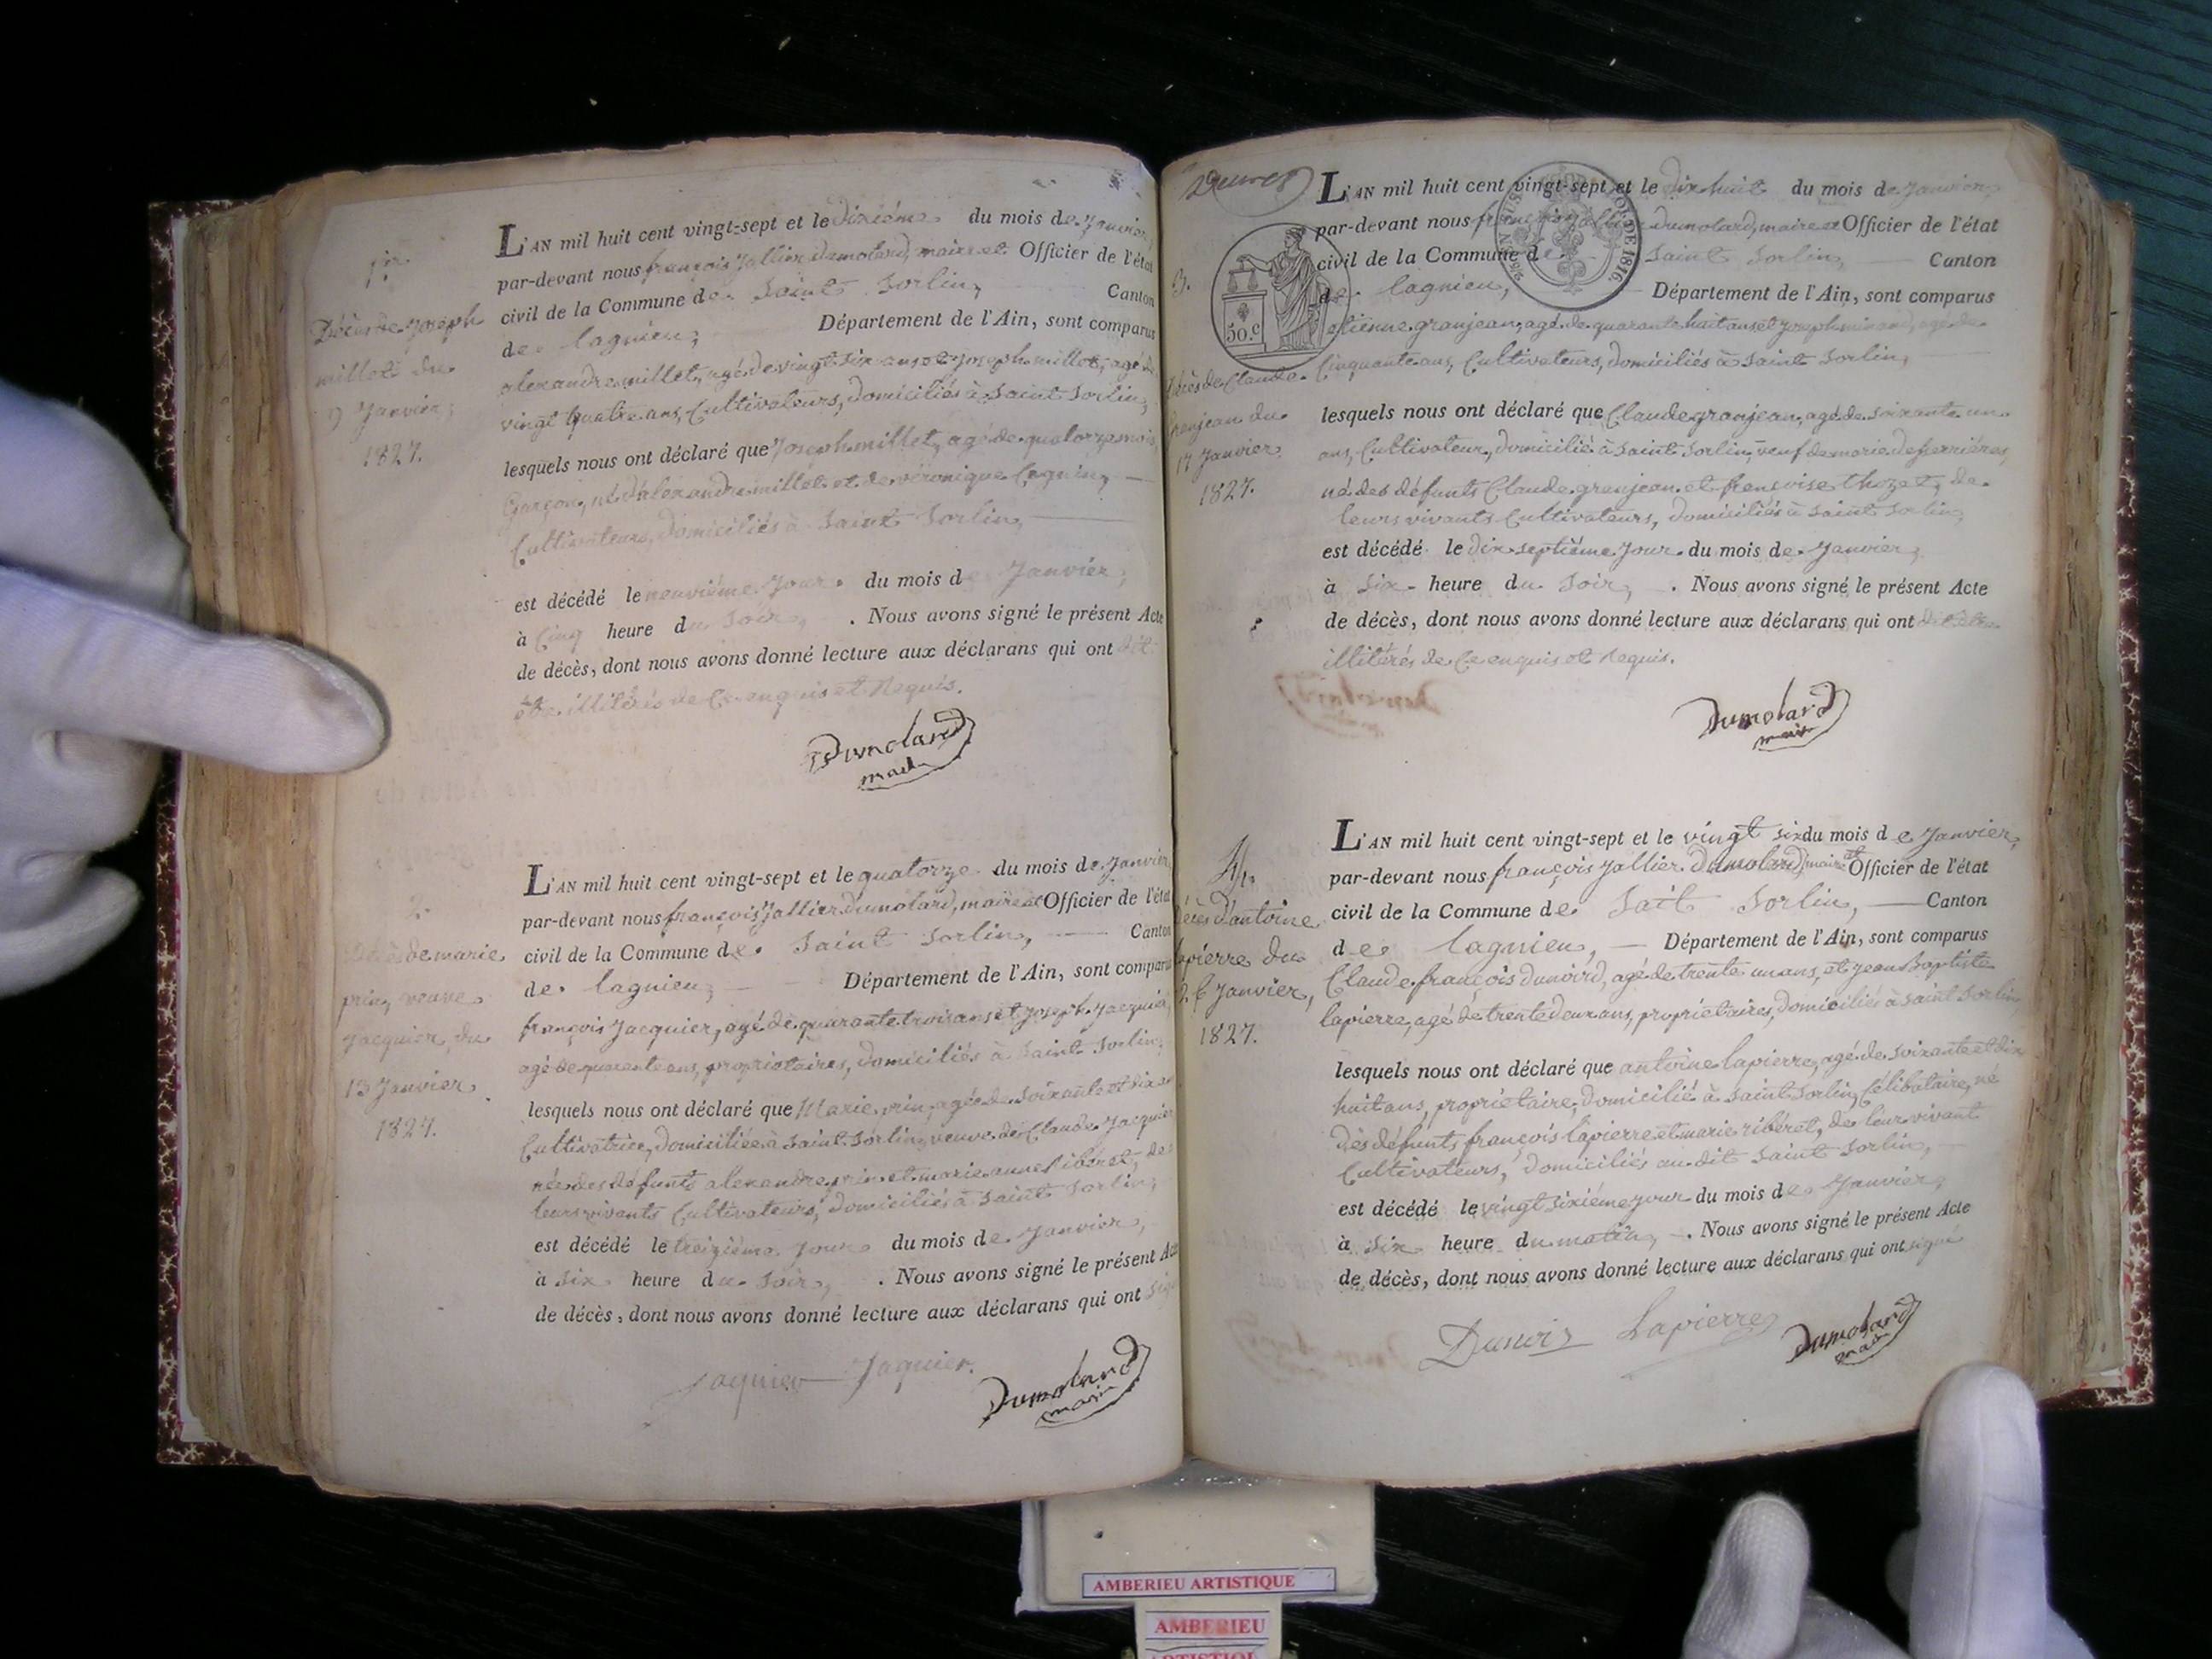 1er
Décès de Joseph
millet du
9 Janvier,
1827.
L'AN mil huit cent vingt-sept et le dixième du mois de Janvier,
par-devant nous françois Jallier Dumolard, maire et Officier de l'état
civil de la Commune de Saint Sorlin, Canton
de lagnieu, Département de l'Ain, sont comparus
alexandre millet, agé de vingt six ans et Joseph millet, agé de
vingt quatre ans, Cultivateurs, domiciliés à Saint Sorlin,
lesquels nous ont déclaré que Joseph millet, agé de quatorze mois,
Garçon, né d'alexandre millet et de véronique
Cultivateurs, domiciliés à Saint Sorlin,
est décédé le neuvième Jour du mois de Janvier,
à Cinq heure du Soir, . Nous avons signé le présent Acte
de décès, dont nous avons donné lecture aux déclarans qui ont dit
être illitérés de Ce enquis et Requis.
Dumolard
maire
2.
Décès de marie
prin, veuve
Jacquier, du
13 Janvier
1827.
L'AN mil huit cent vingt-sept et le quatorze du mois de Janvier
par-devant nous françois Jallier Dumolard, maire et Officier de l'état
civil de la Commune de Saint Sorlin, Canton
de lagnieu, Département de l'Ain, sont comparus
françois Jacquier, agé de quarante trois ans et Joseph Jacquier,
agé de quarante ans, propriétaires, domiciliés à Saint Sorlin,
lesquels nous ont déclaré que Marie prin, agée de soixante et dix ans
Cultivatrice, domiciliée à Saint Sorlin, veuve de Claude Jacquier
née des défunts alexandre prin et marie anne Ribéret, de
leurs vivants Cultivateurs, domiciliés à Saint Sorlin,
est décédé le treizième Jour du mois de Janvier,
à Six heure du Soir, . Nous avons signé le présent Acte
de décès, dont nous avons donné lecture aux déclarans qui ont signé
Jaquier Jaquier.
Dumolard
maire
3.
Décès de Claude
Granjean du
17 Janvier
1827.
50.c
L'AN mil huit cent vingt-sept et le dix huit du mois de Janvier,
par-devant nous françois Jallier Dumolard, maire et Officier de l'état
civil de la Commune de Saint Sorlin, Canton
de lagnieu, Département de l'Ain, sont comparus
etienne granjean, agé de quarante huit ans et Joseph minand, agé de
Cinquante ans, Cultivateurs, domiciliés à Saint Sorlin,
lesquels nous ont déclaré que Claude granjean, agé de soixante un
ans, Cultivateur, domicilié à Saint Sorlin, veuf de marie deferrières,
né des défunts Claude granjean et françoise thozet, de
leurs vivants Cultivateurs, domiciliés à Saint Sorlin,
est décédé le dix septième Jour du mois de Janvier,
à Six heure du Soir, . Nous avons signé le présent Acte
de décès, dont nous avons donné lecture aux déclarans qui ont dit être
illitérés de Ce enquis et Requis.
Dumolard
maire
4.
Décès d'antoine
lapierre du
26 Janvier,
1827.
L'AN mil huit cent vingt-sept et le vingt six du mois de Janvier,
par-devant nous françois Jallier Dumolard, maire et Officier de l'état
civil de la Commune de Sait Sorlin, Canton
de lagnieu, Département de l'Ain, sont comparus
Claude françois dunoird, agé de trente un ans, et Jean Baptiste
lapierre, agé de trente deux ans, propriétaires, domiciliés à Saint Sorlin
lesquels nous ont déclaré que antoine lapierre, agé de soixante et dix
huit ans, propriétaire, domicilié à Saint Sorlin, Célibataire, né
des défunts françois lapierre et marie ribéret, de leur vivant
Cultivateurs, domiciliés au dit Saint Sorlin,
est décédé le vingt sixième jour du mois de Janvier,
à Six heure du matin, . Nous avons signé le présent Acte
de décès, dont nous avons donné lecture aux déclarans qui ont signé
Dunoir Lapierre
Dumolard
maire
AMBERIEU ARTISTIQUE
AMBERIEU
ARTISTIQUE